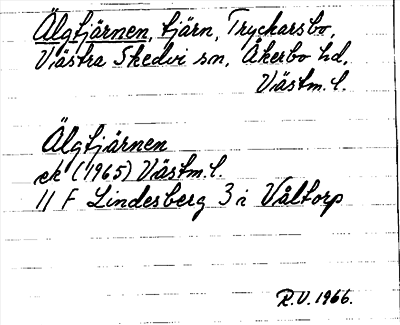 Älgtjärnen, tjärn, Tryckarsbo,
Västra Skedvi sn, Åkerbo hd,
Västm. l.
Älgtjärnen
ek (1965) Västm. l.
11 F Lindesberg 3 i Våltorp
R.V. 1966.